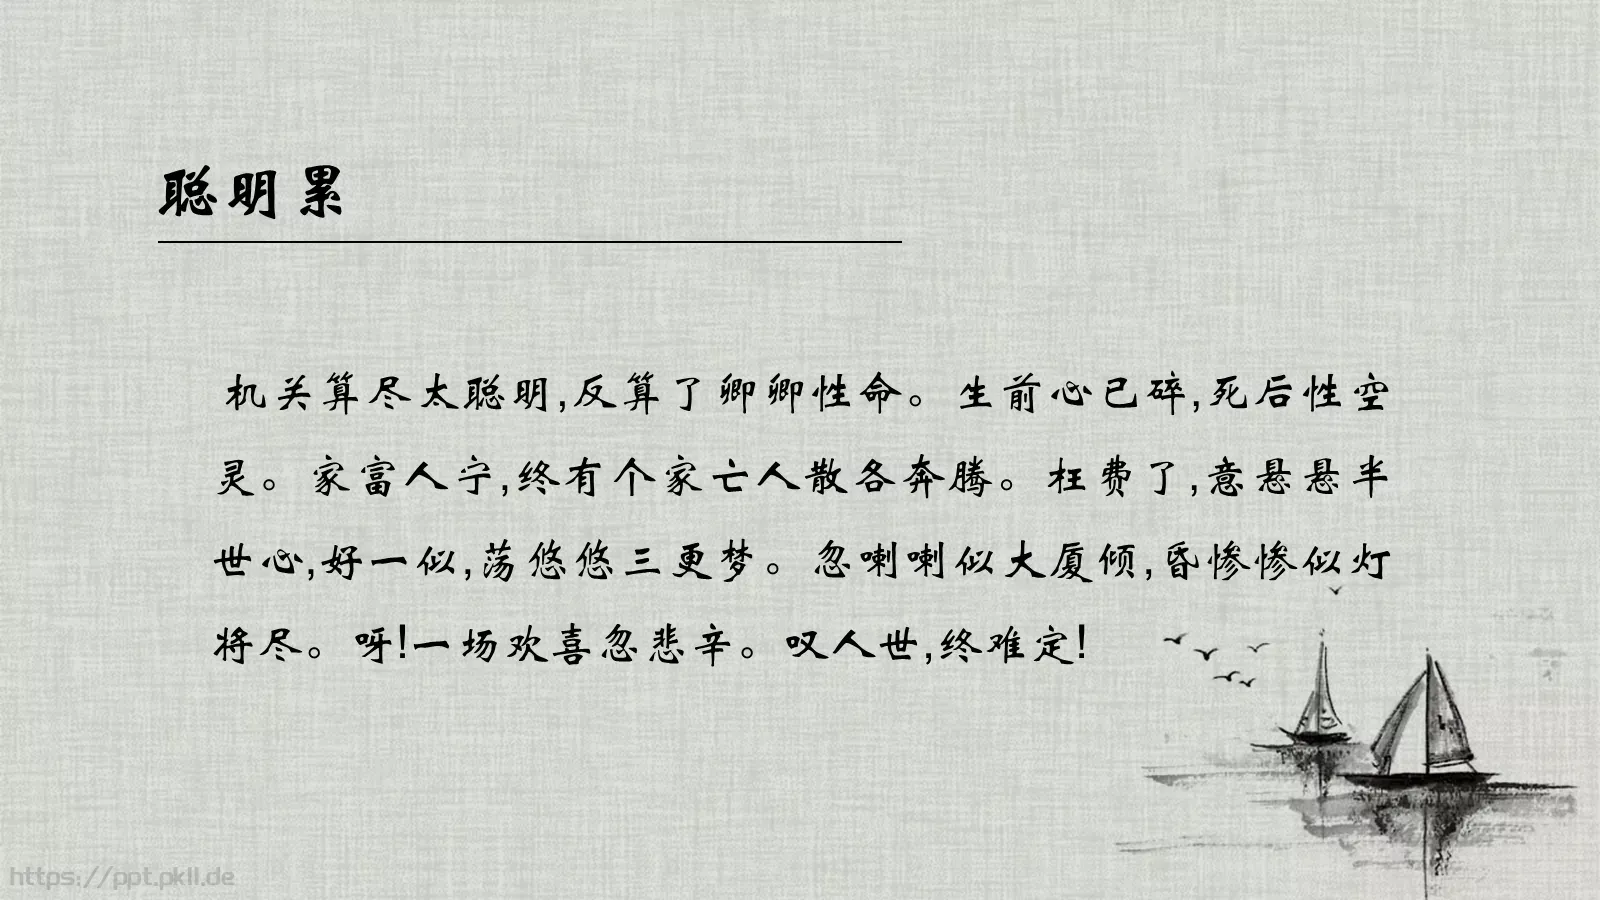 聪明累
机关算尽太聪明,反算了卿卿性命。生前心已碎,死后性空
灵。家富人宁,终有个家亡人散各奔腾。枉费了,意悬悬半
世心,好一似,荡悠悠三更梦。忽喇喇似大厦倾,昏惨惨似灯
将尽。呀!一场欢喜忽悲辛。叹人世,终难定!
https://ppt.pkll.de